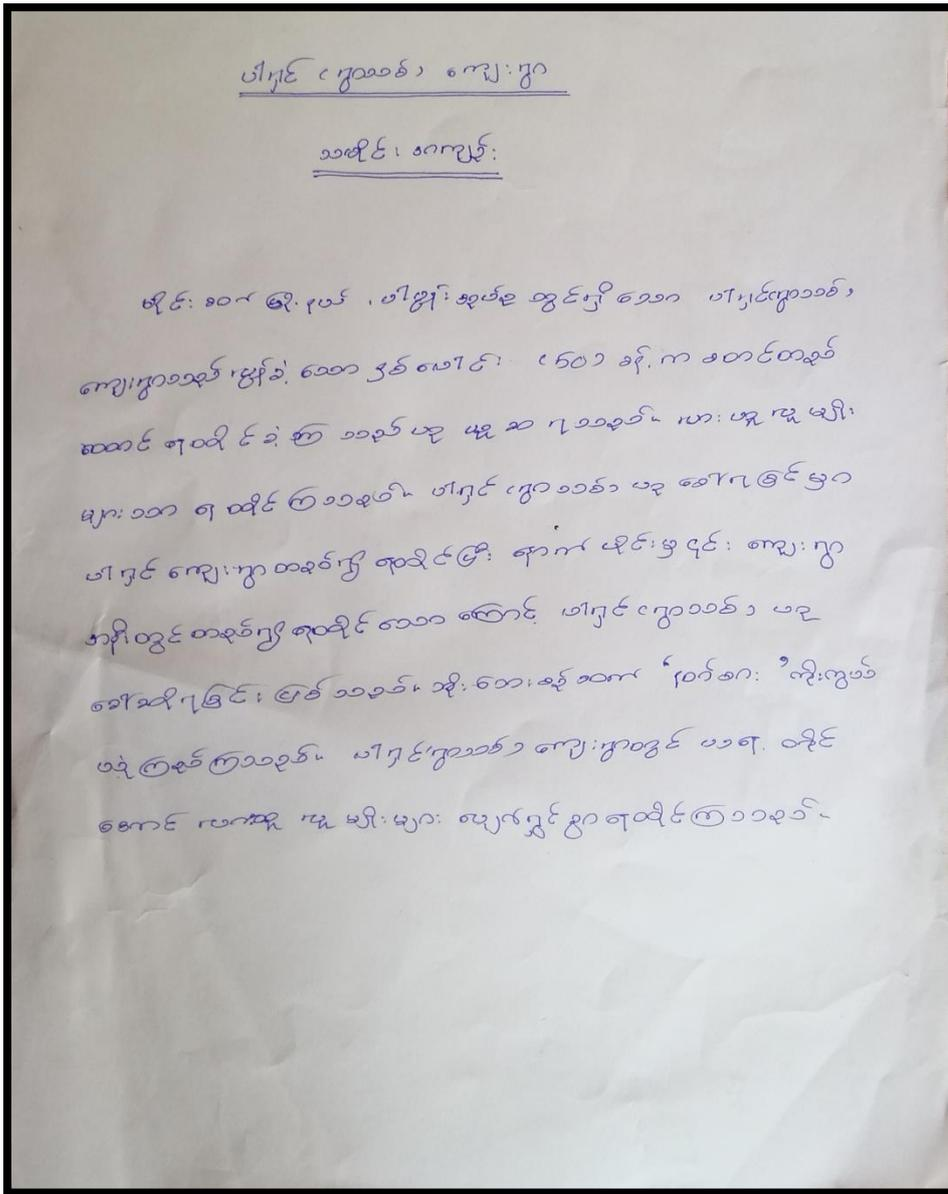 ပါရှင် (ရွာသစ်) ကျေးရွာ
သမိုင်း စာကျဉ်း
မိုင်း မြို့နယ် ၊ အုပ်စု တွင်ရှိ သော ပါရှင်(ရွာသစ်)
ကျေးရွာသည် လွန်ခဲ့ သော နှစ်ပေါင်း (၅၀) ခန့် က စတင်တည်
ထောင် နေထိုင်ခဲ့ ကြ သည်ဟု ယူဆ ရသည်။ လားဟူ လူမျိုး
များသာ နေထိုင်ကြသည်။ ပါရှင် (ရွာသစ်) ဟု ခေါ်ရခြင်မှာ
ပါရှင် ကျေးရွာ တည်ရှိ နေထိုင်ပြီး နောက် ပိုင်းမှ ၎င်း ကျေးရွာ
အနီးတွင် တည်ရှိ နေထိုင် သော ကြောင့် ပါရှင်(ရွာသစ်) ဟု
ခေါ်ဆိုရခြင်း ဖြစ်သည်။ ဘိုးဘေးစဉ်ဆက် 'နတ်စား' ကိုးကွယ်
ယုံကြည်ကြသည်။ ပါရှင်(ရွာသစ်) ကျေးရွာတွင် ယနေ့ တိုင်
အောင် လားဟူ လူမျိုးများ ပျော်ရွှင်စွာ နေထိုင်ကြသည်။